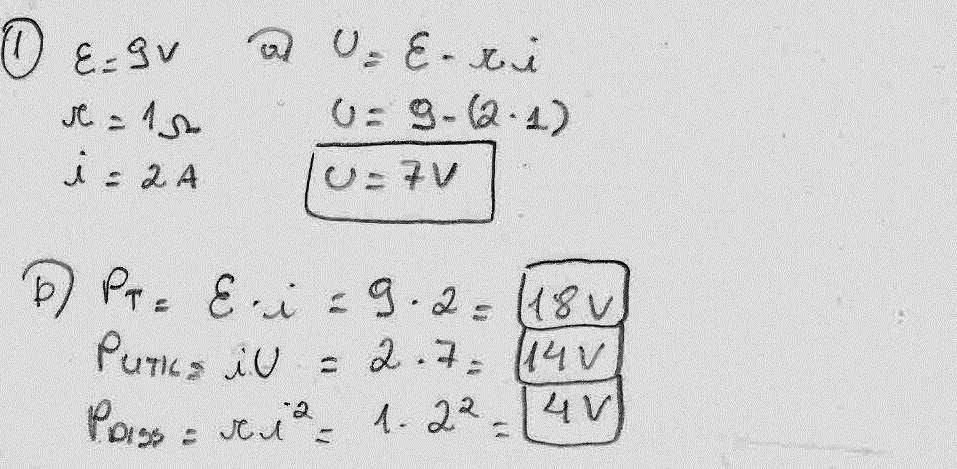 1) ε = 9V a) U = ε - r i
r = 1Ω U = 9 - (2 · 1)
i = 2 A U = 7V
b) PT = ε · i = 9 · 2 = 18V
PUTIL = iU = 2 · 7 = 14V
PDISS = r i² = 1 · 2² = 4V